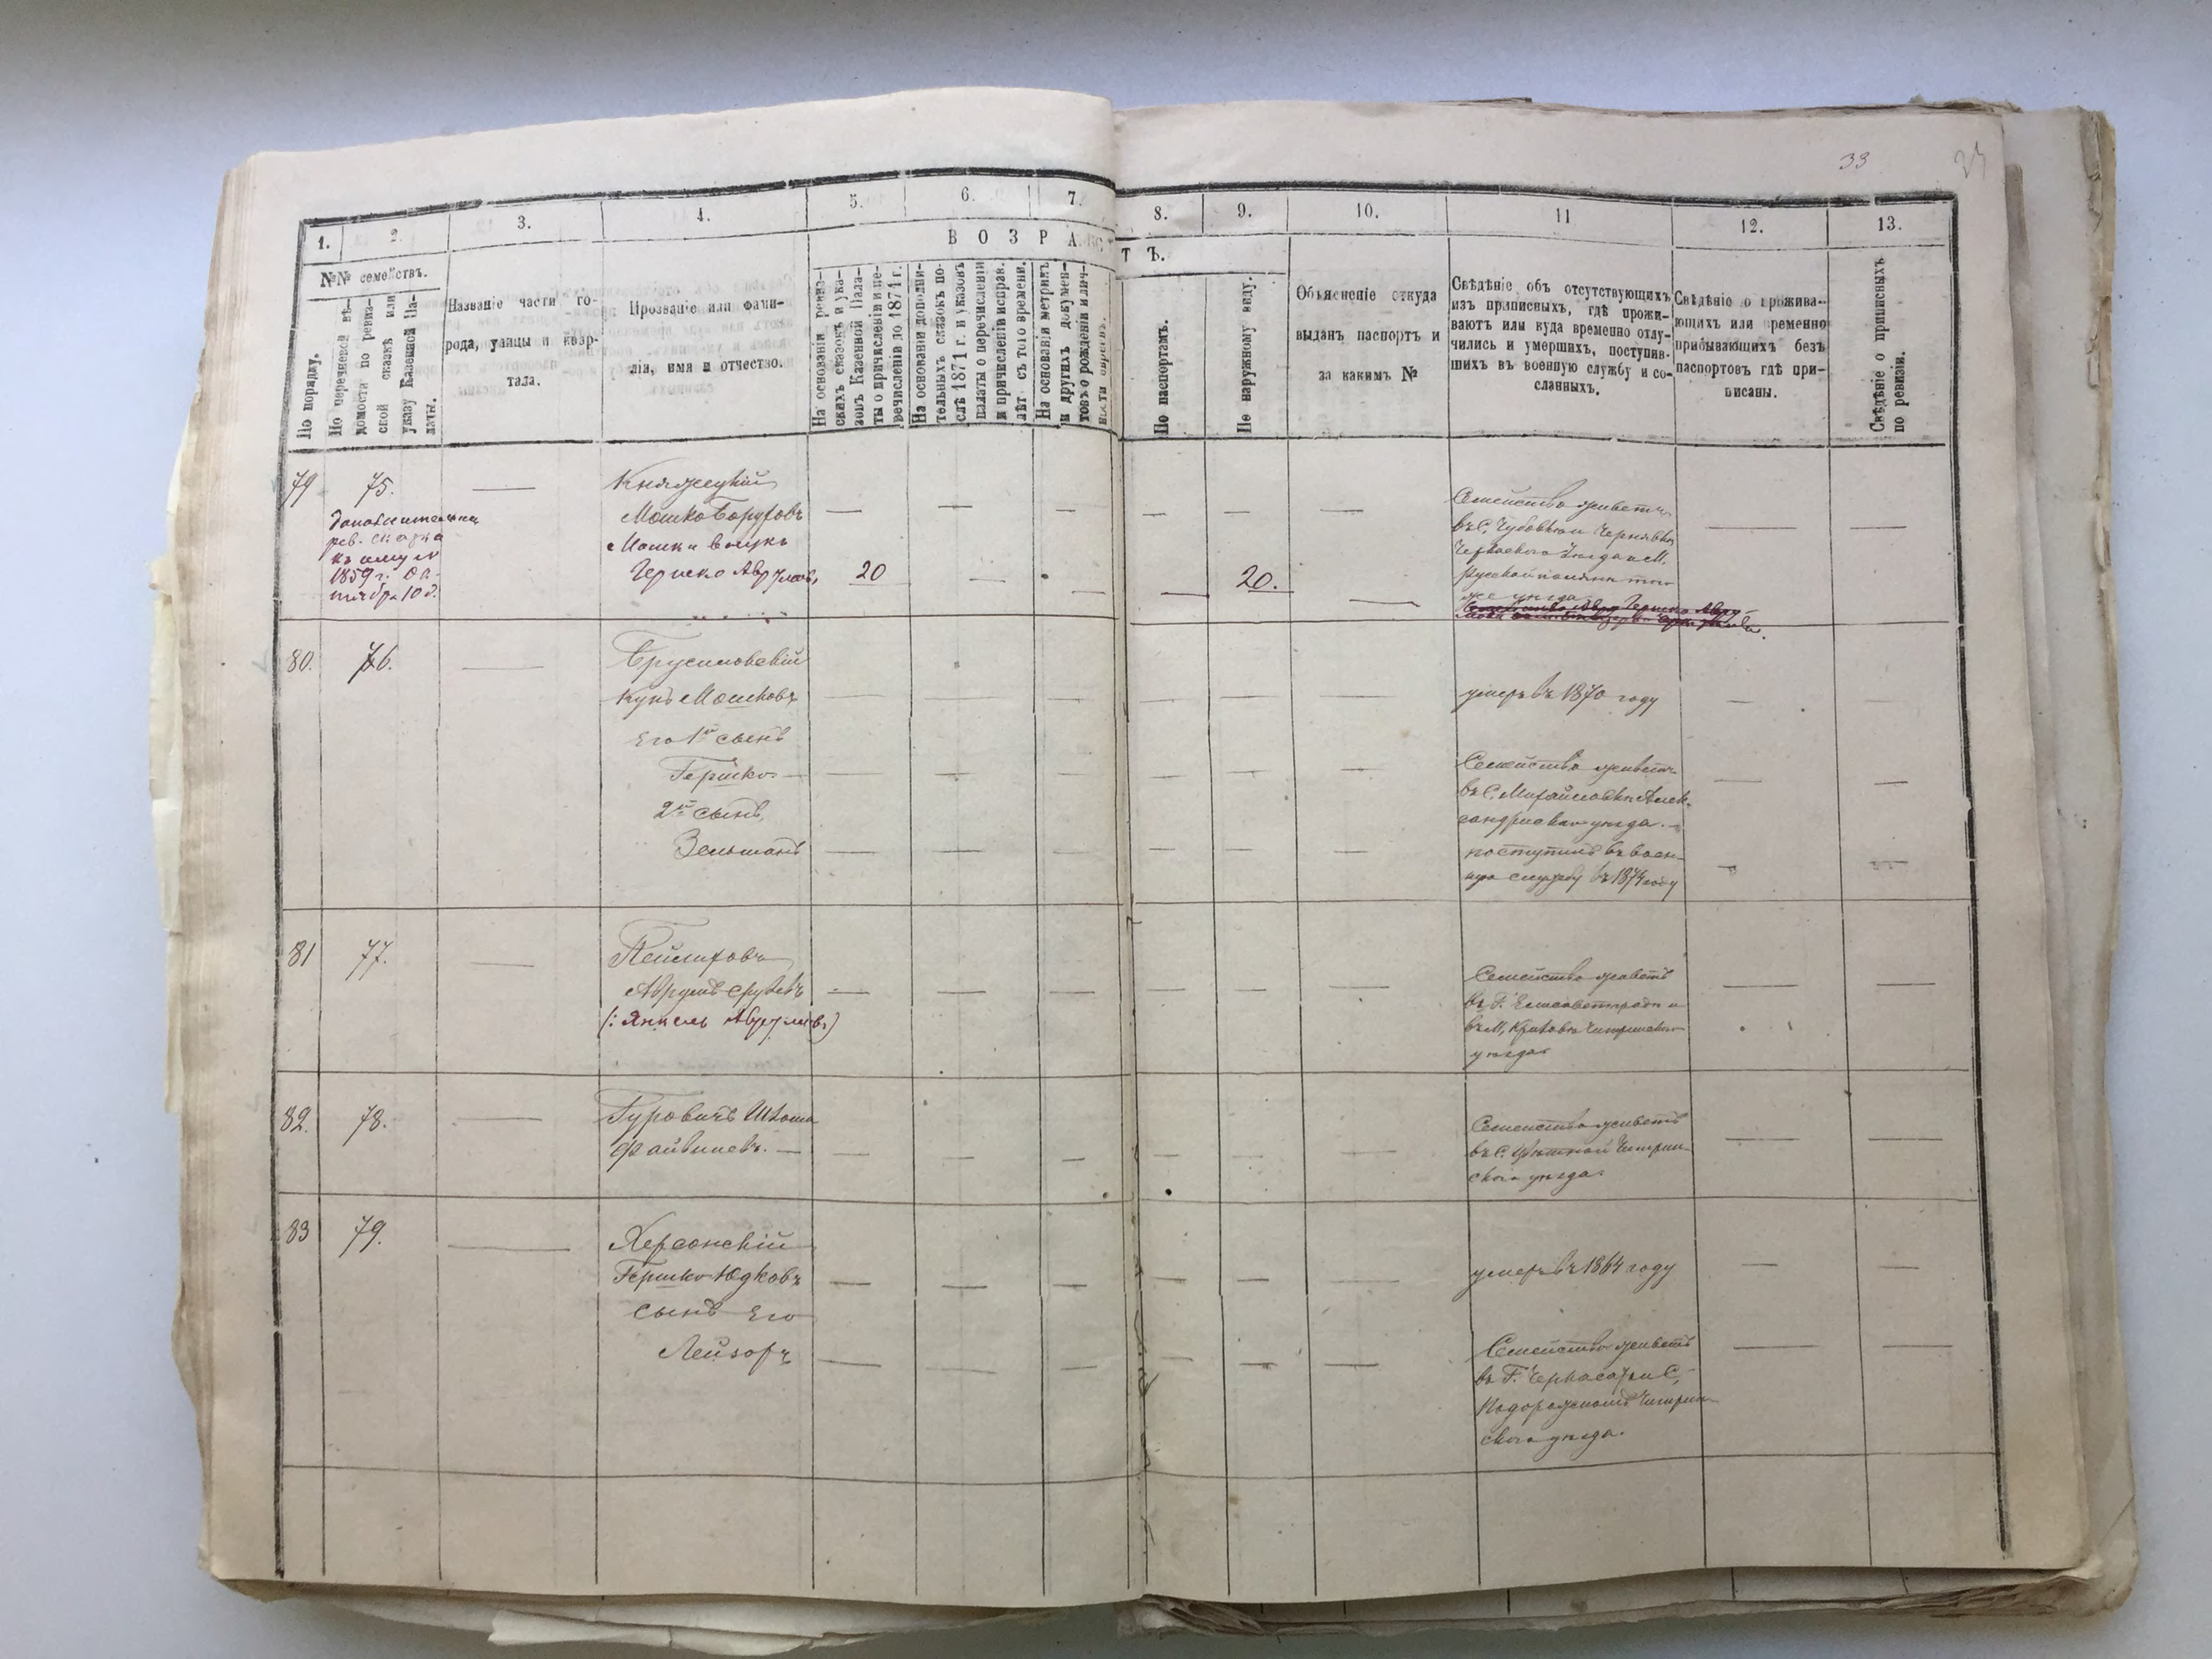 33
1.
2.
3.
4.
5.
6.
7.
8.
9.
10.
11
12.
13.
№№ семействъ.
В О З Р А С Т Ъ.
По порядку.
По перечневой вѣ-
домости по ревиз-
ской сказкѣ или
указу Казенной Па-
латы.
Названіе части го-
рода, улицы и квар-
тала.
Прозваніе или фами-
лія, имя и отчество.
На основаніи ревиз-
скихъ сказокъ и ука-
зовъ Казенной Пала-
ты о причисленіи и пе-
речисленіи до 1871 г.
На основаніи дополни-
тельныхъ сказокъ по-
слѣ 1871 г. и указовъ
палаты о перечисленіи
и причисленіи исправ.
лѣт. съ того времени.
На основаніи метрикъ
и другихъ докумен-
товъ о рожденіи и лич-
По паспортамъ.
По наружному виду.
Объясненіе откуда
выданъ паспортъ и
за какимъ №
Свѣдѣніе объ отсутствующихъ
изъ приписныхъ, гдѣ прожи-
ваютъ или куда временно отлу-
чились и умершихъ, поступив-
шихъ въ военную службу и со-
сланныхъ.
Свѣдѣніе о прожива-
ющихъ или временно
прибывающихъ безъ
паспортовъ гдѣ при-
писаны.
Свѣдѣніе о приписныхъ
по ревизіи.
79
75.
рев. сказка
1859 г. Ок-
тября 10 д.
Княжецкій
Мошко Боруховъ
Мошки внукъ
Гершко Аврумовъ
20
20.
Семейство живетъ
въ С.
Черкаскаго уѣзда и М.
Русской полянѣ того
же уѣзда
80.
76.
Брусиловскій
Мошковъ
Его 1й сынъ
Гершко
2й сынъ
Зельманъ
умеръ въ 1870 году
Семейство живетъ
въ С. Михайловкѣ Алек-
сандрійскаго уѣзда.
поступилъ въ воен-
ную службу въ 1874 году
81
77.
Аврумъ Срулевъ
(: Янкель Аврумовъ)
Семейство живетъ
въ Г. Елисаветградѣ и
въ М. Чигринскаго
уѣзда
82.
78.
Гуровичъ Шлома
Файвишевъ.
Семейство живетъ
въ С. Цвѣтной Чигрин-
скаго уѣзда.
83
79.
Херсонскій
Гершко Юдковъ
сынъ Его
Лейзоръ
умеръ въ 1864 году
Семейство живетъ
въ Г. Черкасахъ и С.
Подорожномъ Чигрин-
скаго уѣзда.